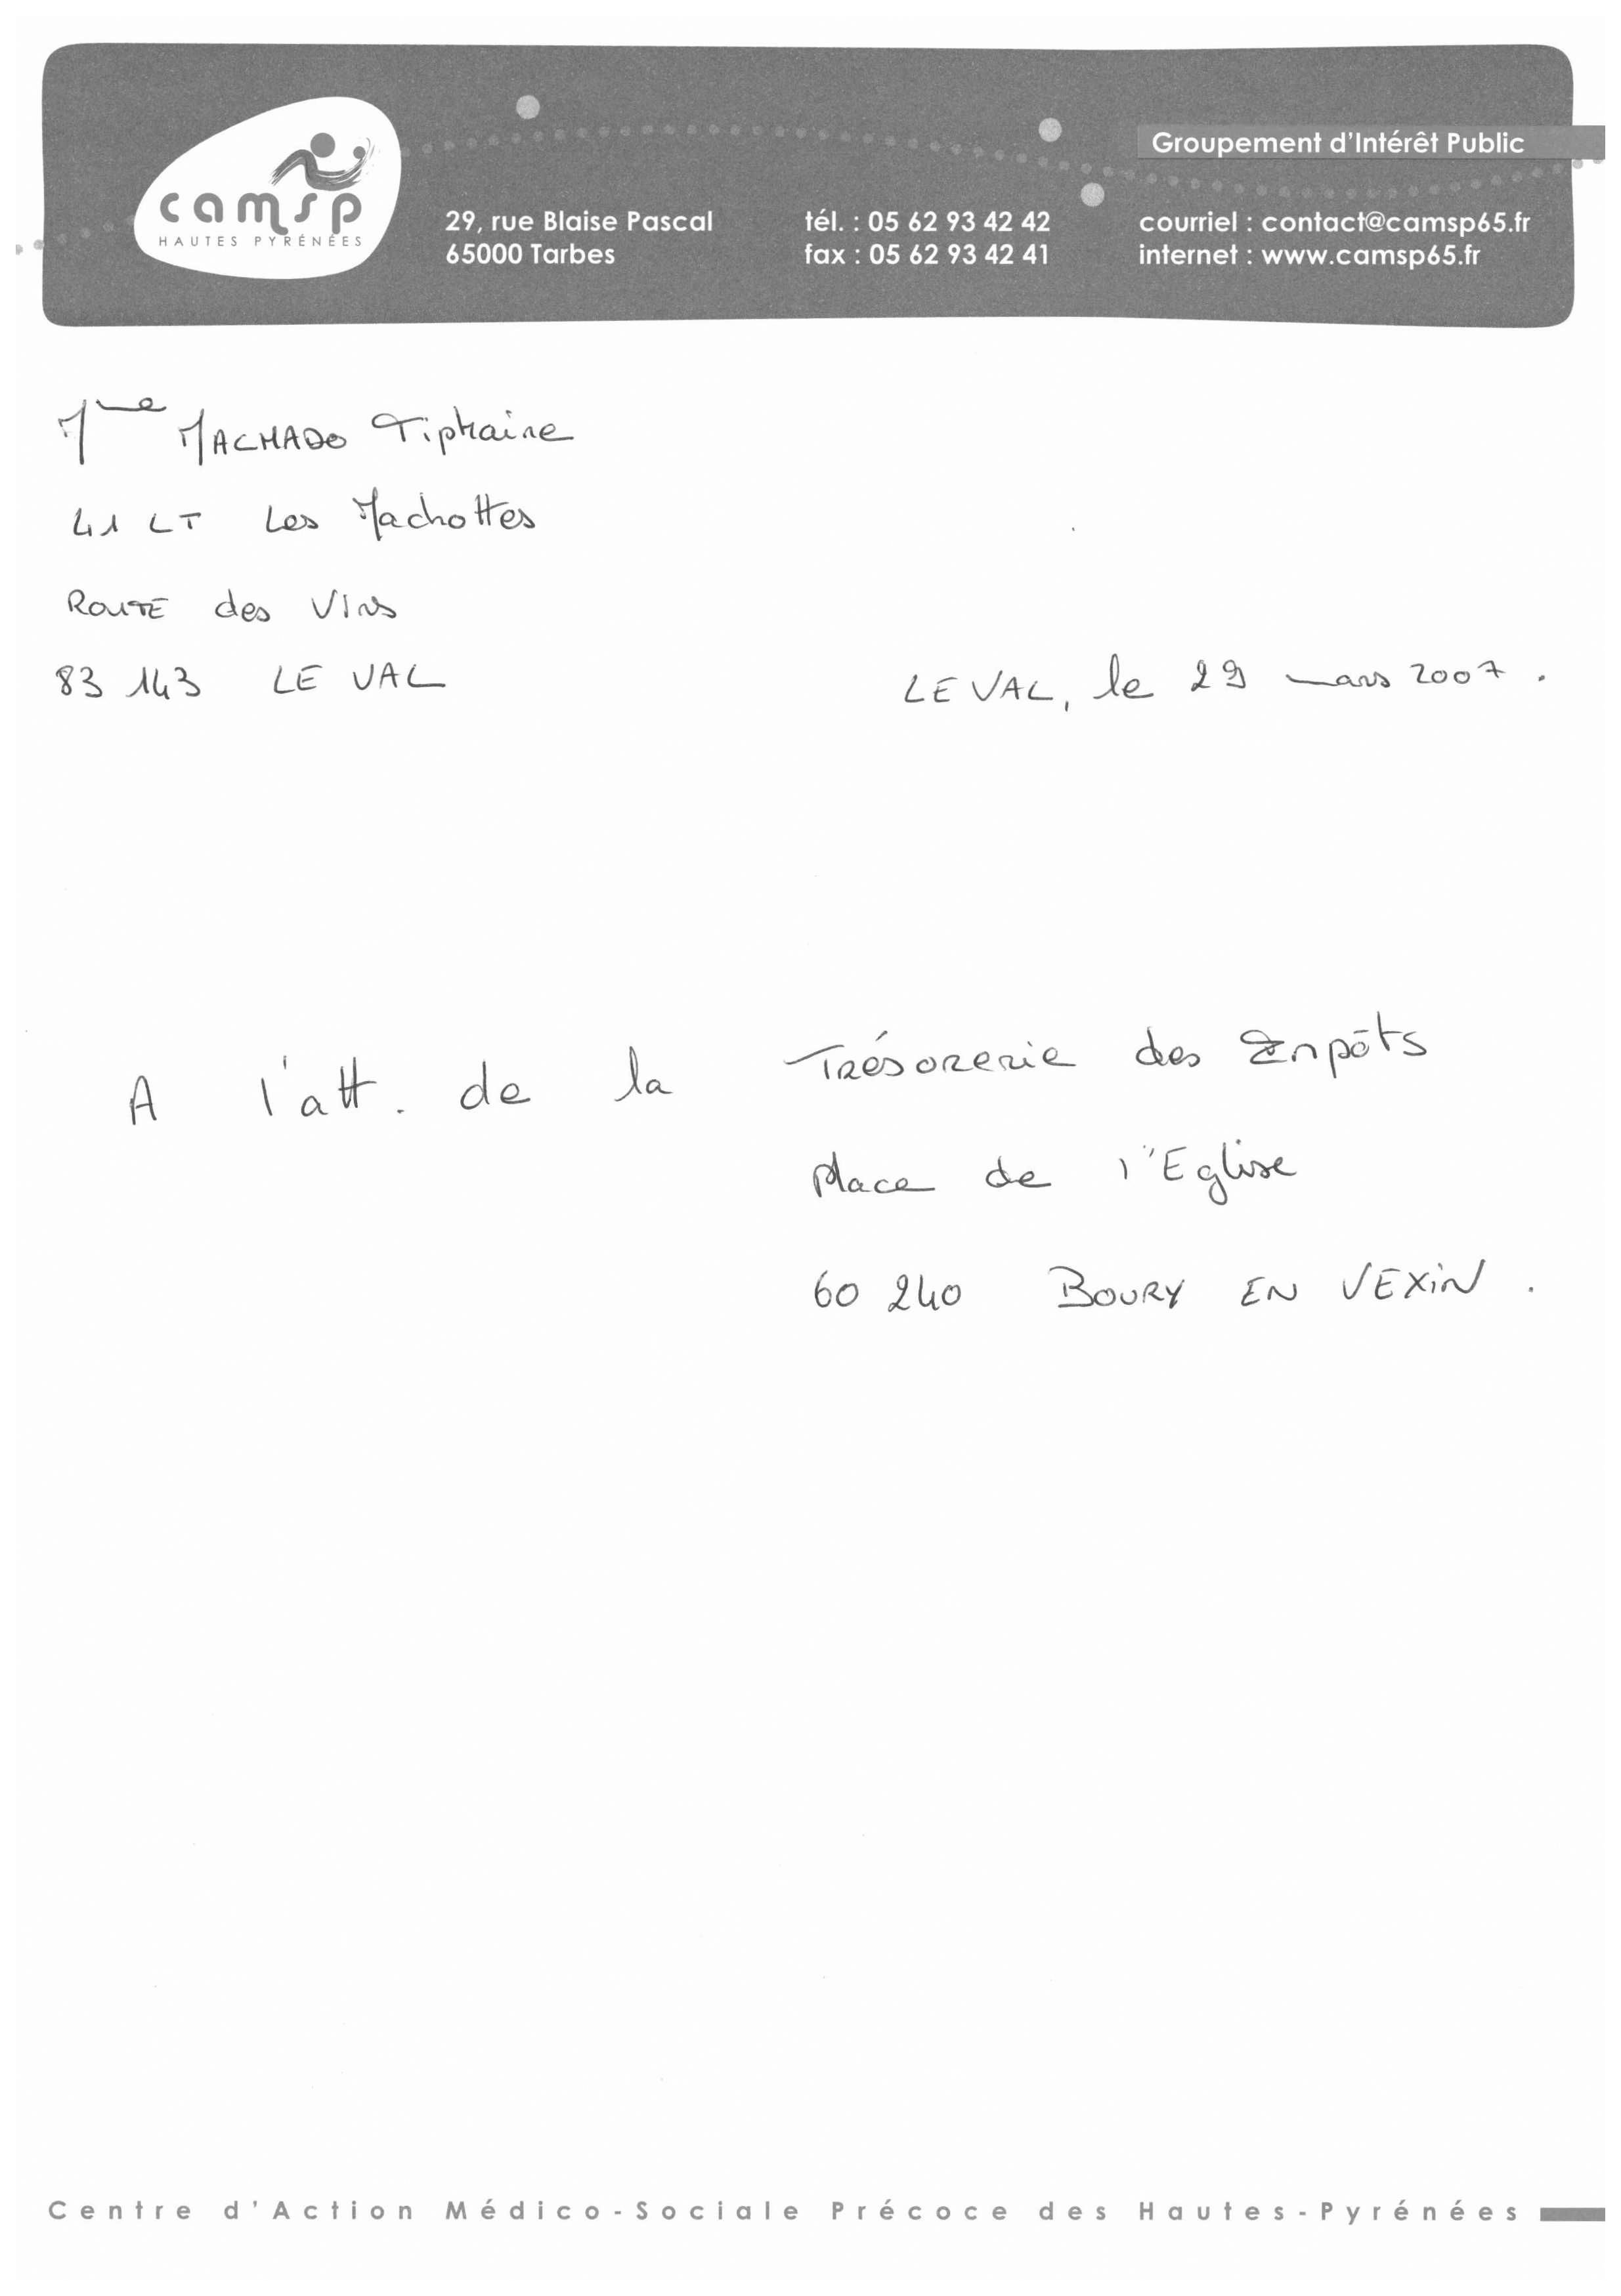 Groupement d'Intérêt Public
camsp
HAUTES PYRÉNÉES
29, rue Blaise Pascal
65000 Tarbes
tél. : 05 62 93 42 42
fax : 05 62 93 42 41
courriel : contact@camsp65.fr
internet : www.camsp65.fr
Mme MACHADO Tiphaine
41 LT Les Machottes
ROUTE des VINS
83 143 LE VAL
LE VAL, le 29 mars 2007.
A l'att. de la Trésorerie des Inpôts
place de l'Eglise
60 240 BOURY EN VEXIN.
Centre d'Action Médico-Sociale Précoce des Hautes-Pyrénées